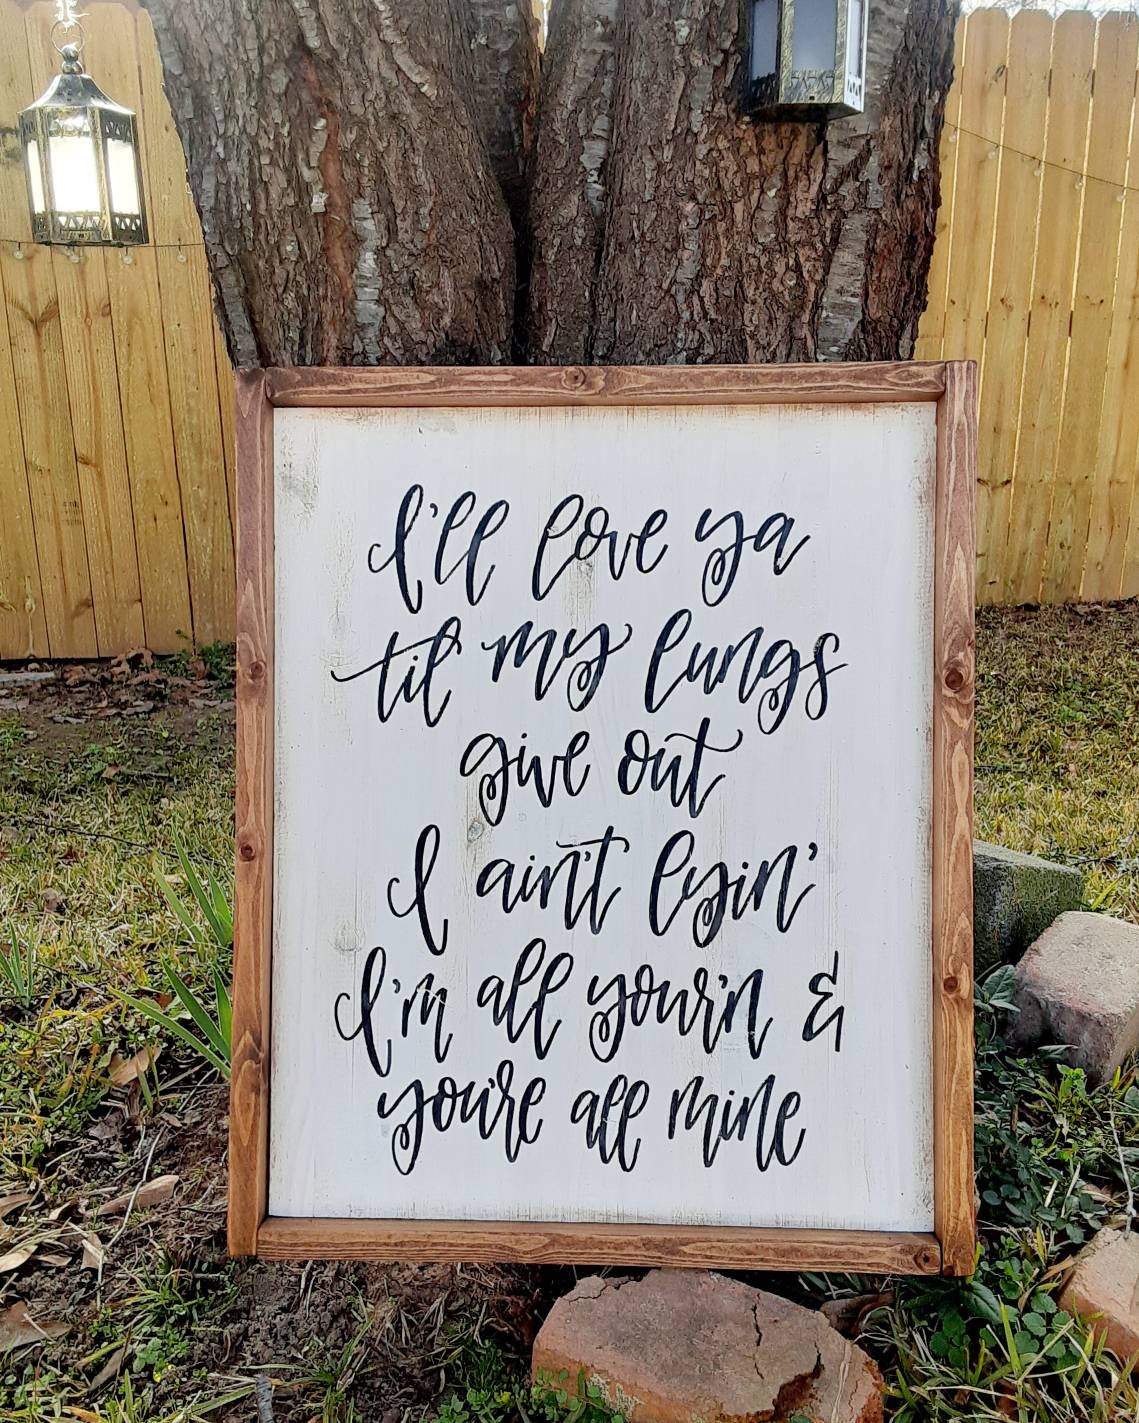 I'll love ya
'til my lungs
give out
I ain't lyin'
I'm all your'n &
you're all mine